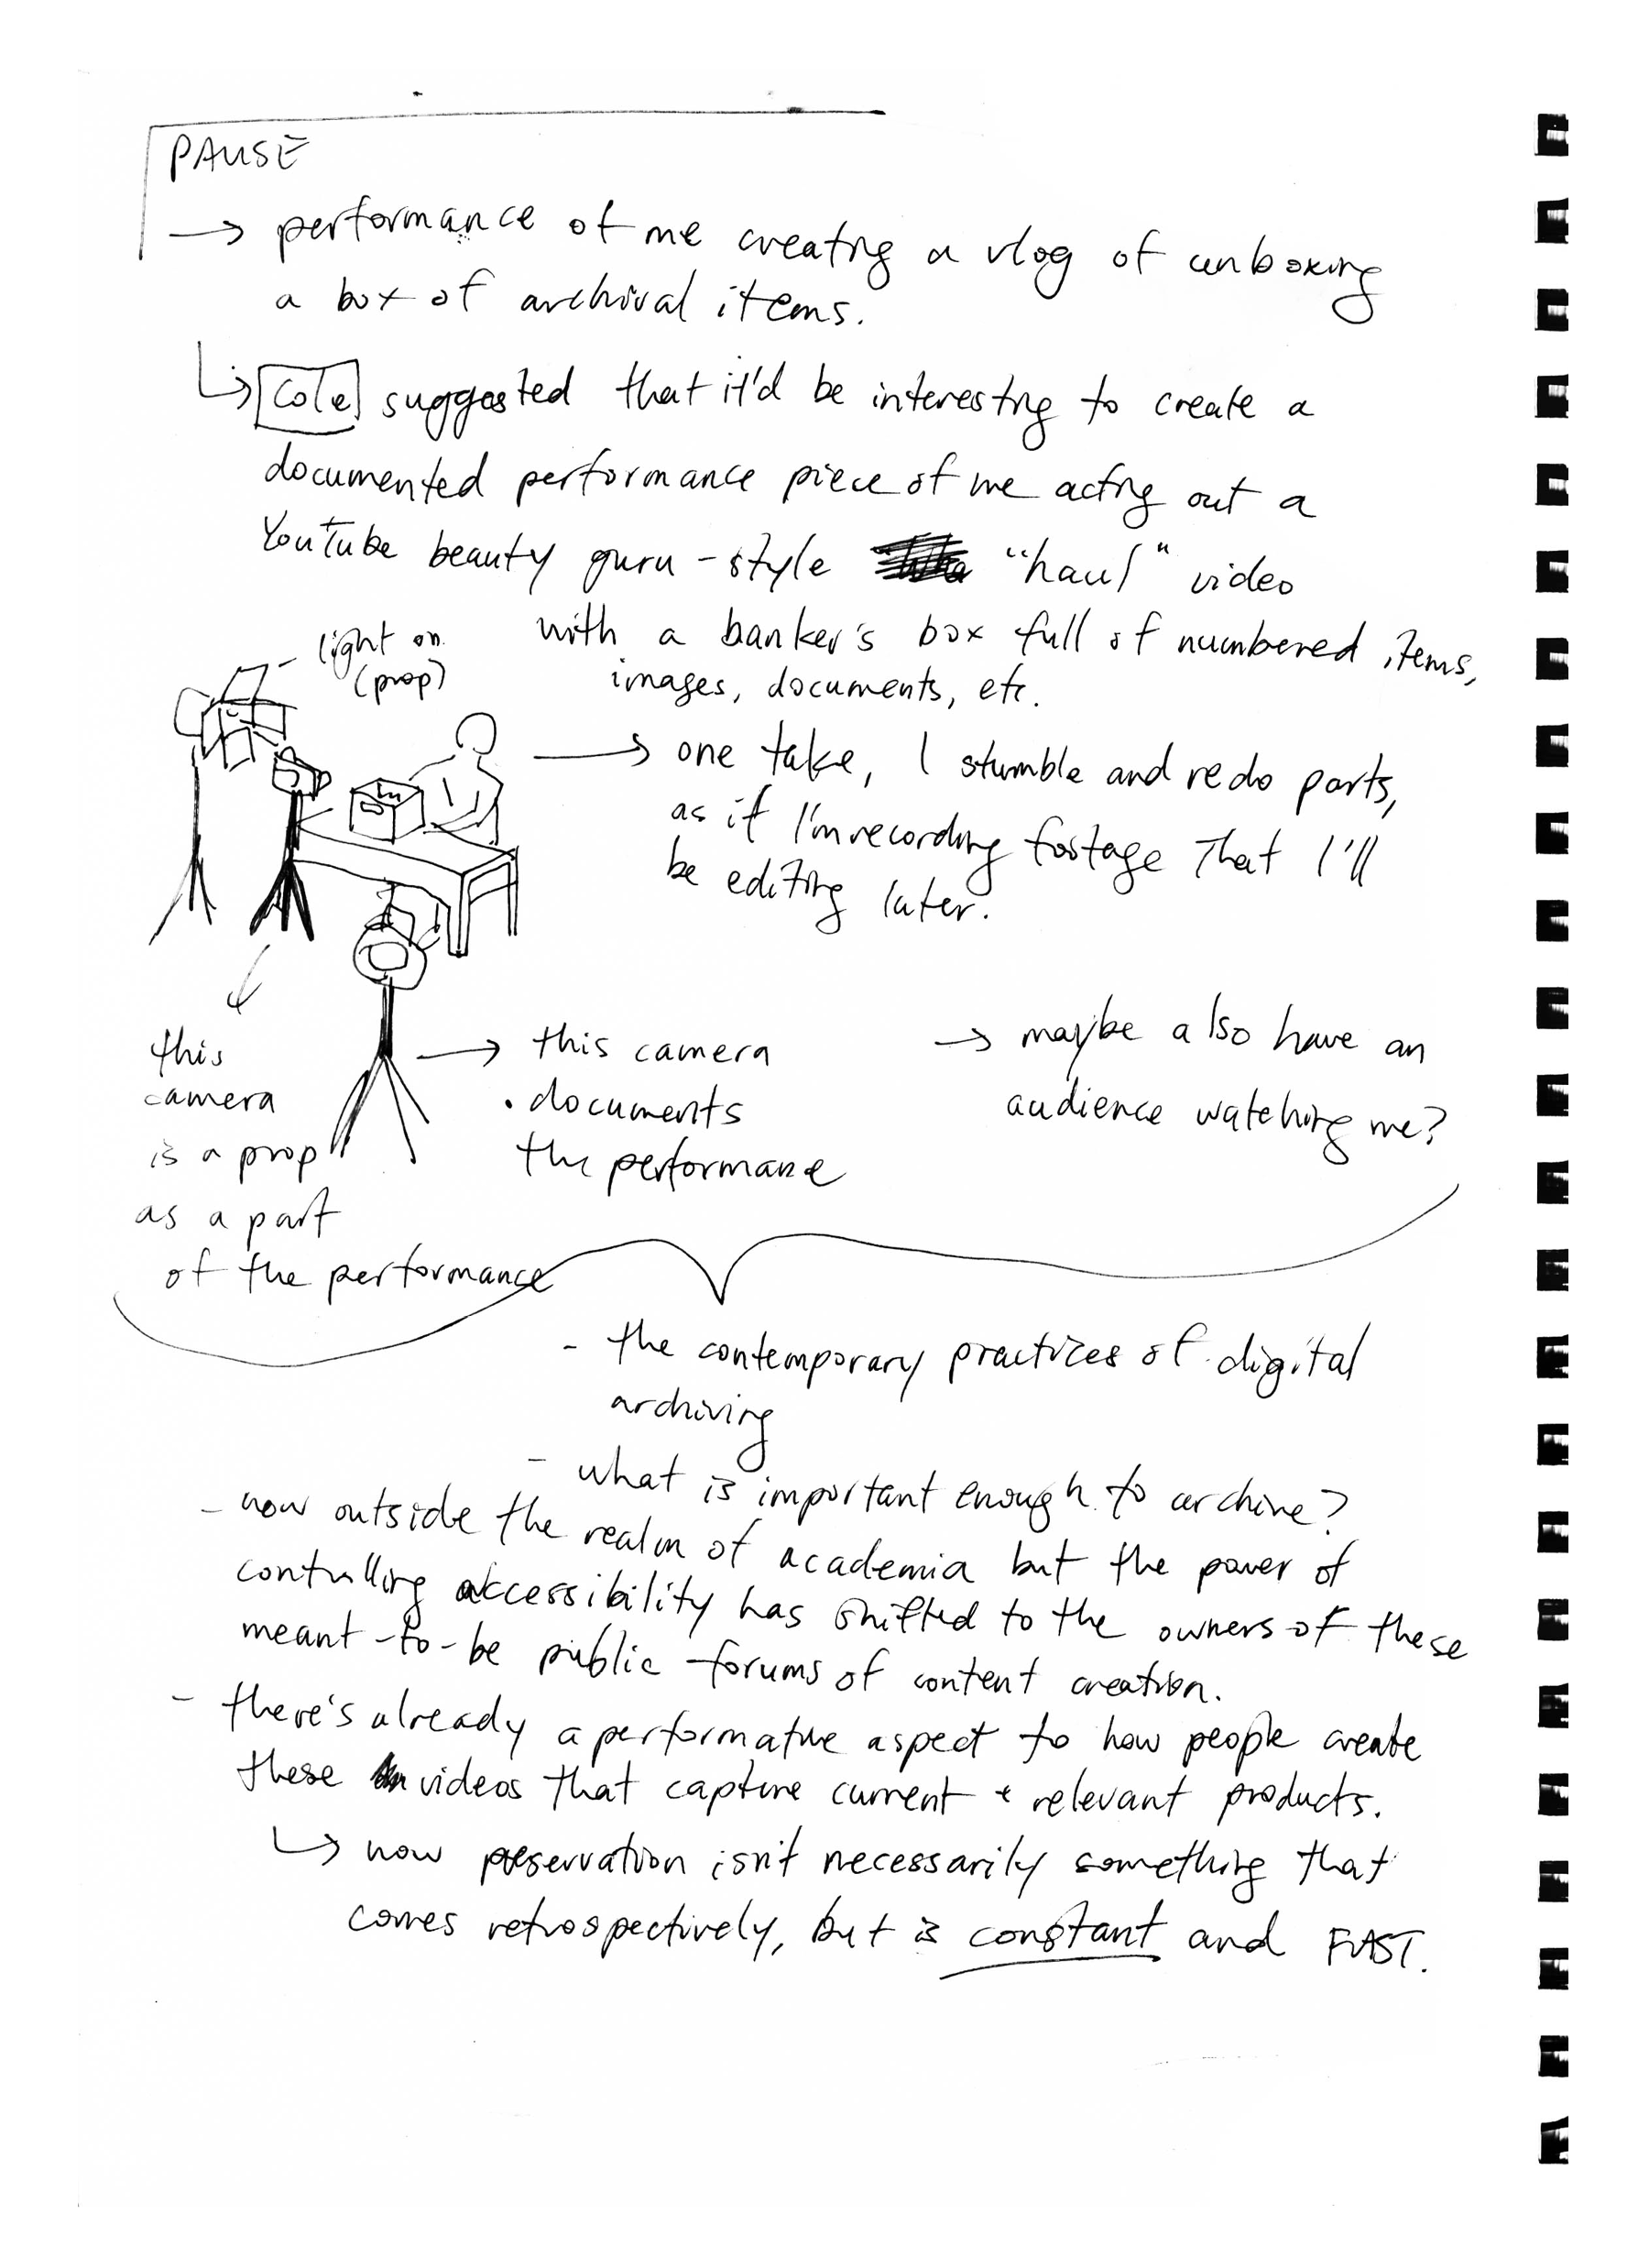 PAUSE
→ performance of me creating a vlog of unboxing
a box of archival items.
↳ Cole suggested that it'd be interesting to create a
documented performance piece of me acting out a
YouTube beauty guru-style "haul" video
with a banker's box full of numbered items,
images, documents, etc.
light on
(prop)
→ one take, I stumble and redo parts,
as if I'm recording footage that I'll
be editing later.
this
camera
is a prop
as a part
of the performance
→ this camera
documents
the performance
→ maybe also have an
audience watching me?
- the contemporary practices of digital
archiving
- what is important enough to archive?
- now outside the realm of academia but the power of
controlling accessibility has shifted to the owners of these
meant-to-be public forums of content creation.
- there's already a performative aspect to how people create
these videos that capture current + relevant products.
↳ now preservation isn't necessarily something that
comes retrospectively, but is constant and FAST.